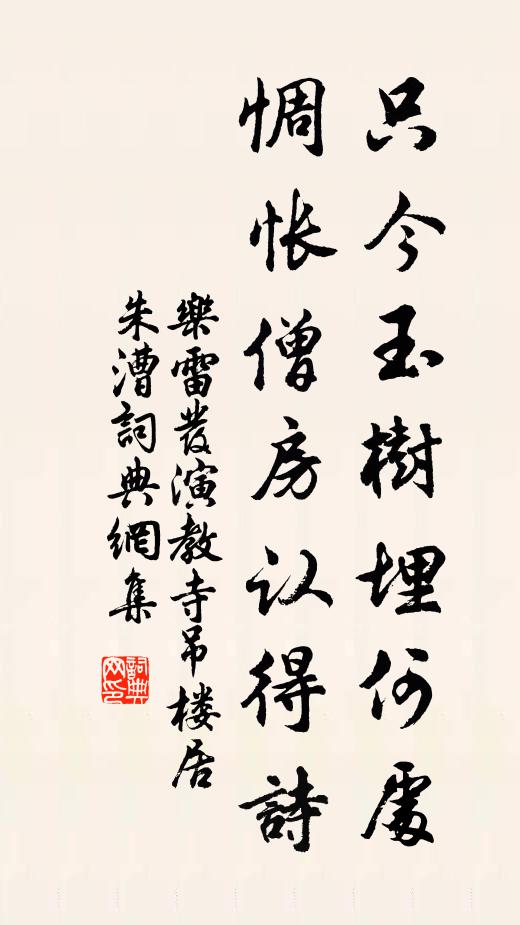 只今玉樹埋何處
惆悵僧房认得詩
樂雷發演教寺吊楼居
朱漕詞典網集
詞典网印